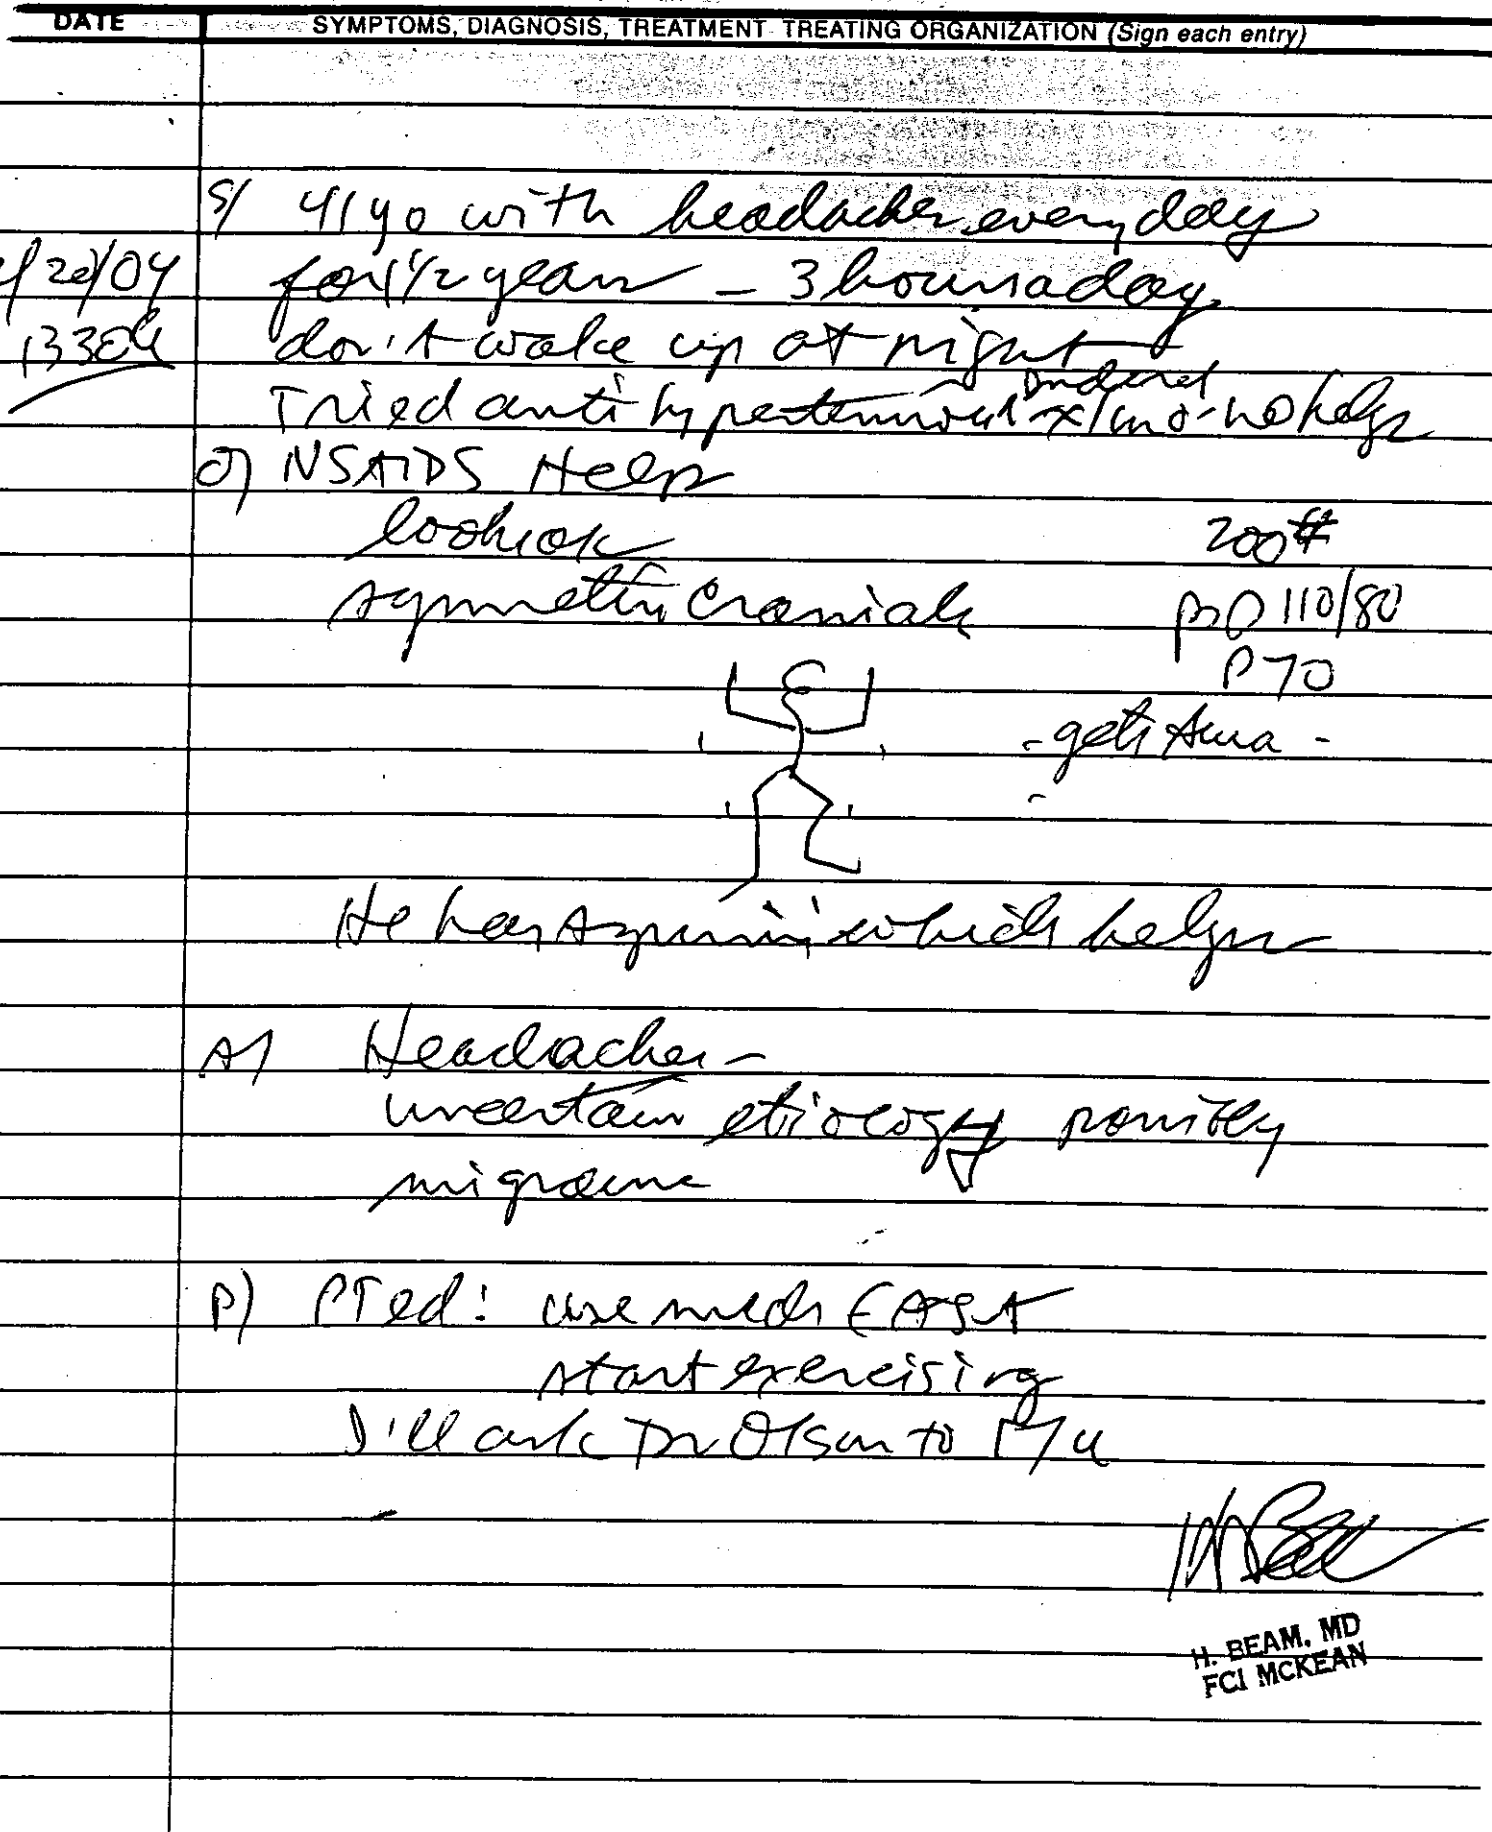 DATE SYMPTOMS, DIAGNOSIS, TREATMENT TREATING ORGANIZATION (Sign each entry)
S/ 41 yo with headaches every day
/20/04 for 1 1/2 years - 3 hours a day
1330h don't wake up at night
Inderal
Tried anti hypertensival x 1 mo - no help
O) NSAIDS Help
looks ok 200#
symmetric cranials BP 110/80
P 70
- gets Aura -
He has Aspirin, which helps
A) Headaches -
uncertain etiology possibly
migraine
P) PT ed: use meds
start exercising
I'll ask Dr Olson to F/u
H. BEAM, MD
FCI MCKEAN